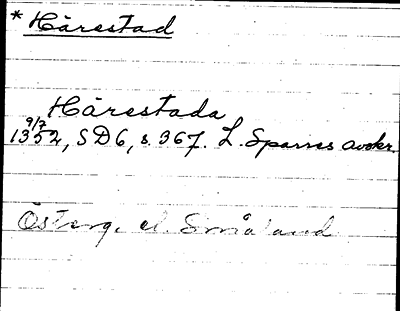 * Härestad
Härestada
9/7
1352, SD6, s. 367. L. Sparres avskr.
Österg. el. Småland